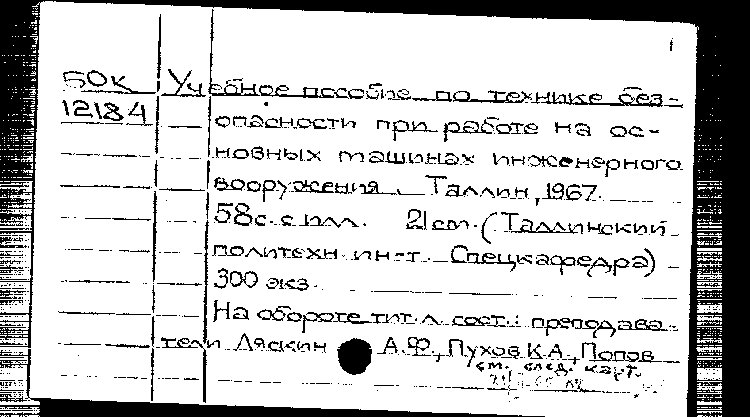 1
50к Учебное пособие по технике без-
12184 опасности при работе на ос-
новных машинах инженерного
вооружения. Таллин, 1967.
58с. с илл. 21 cm. (Таллинский
политехн. ин-т. Спецкафедра)
300 экз.
На обороте тит. л. сост.: преподава-
тели Ляскин А.Ф., Пухов К.А., Попов
см. след. карт.